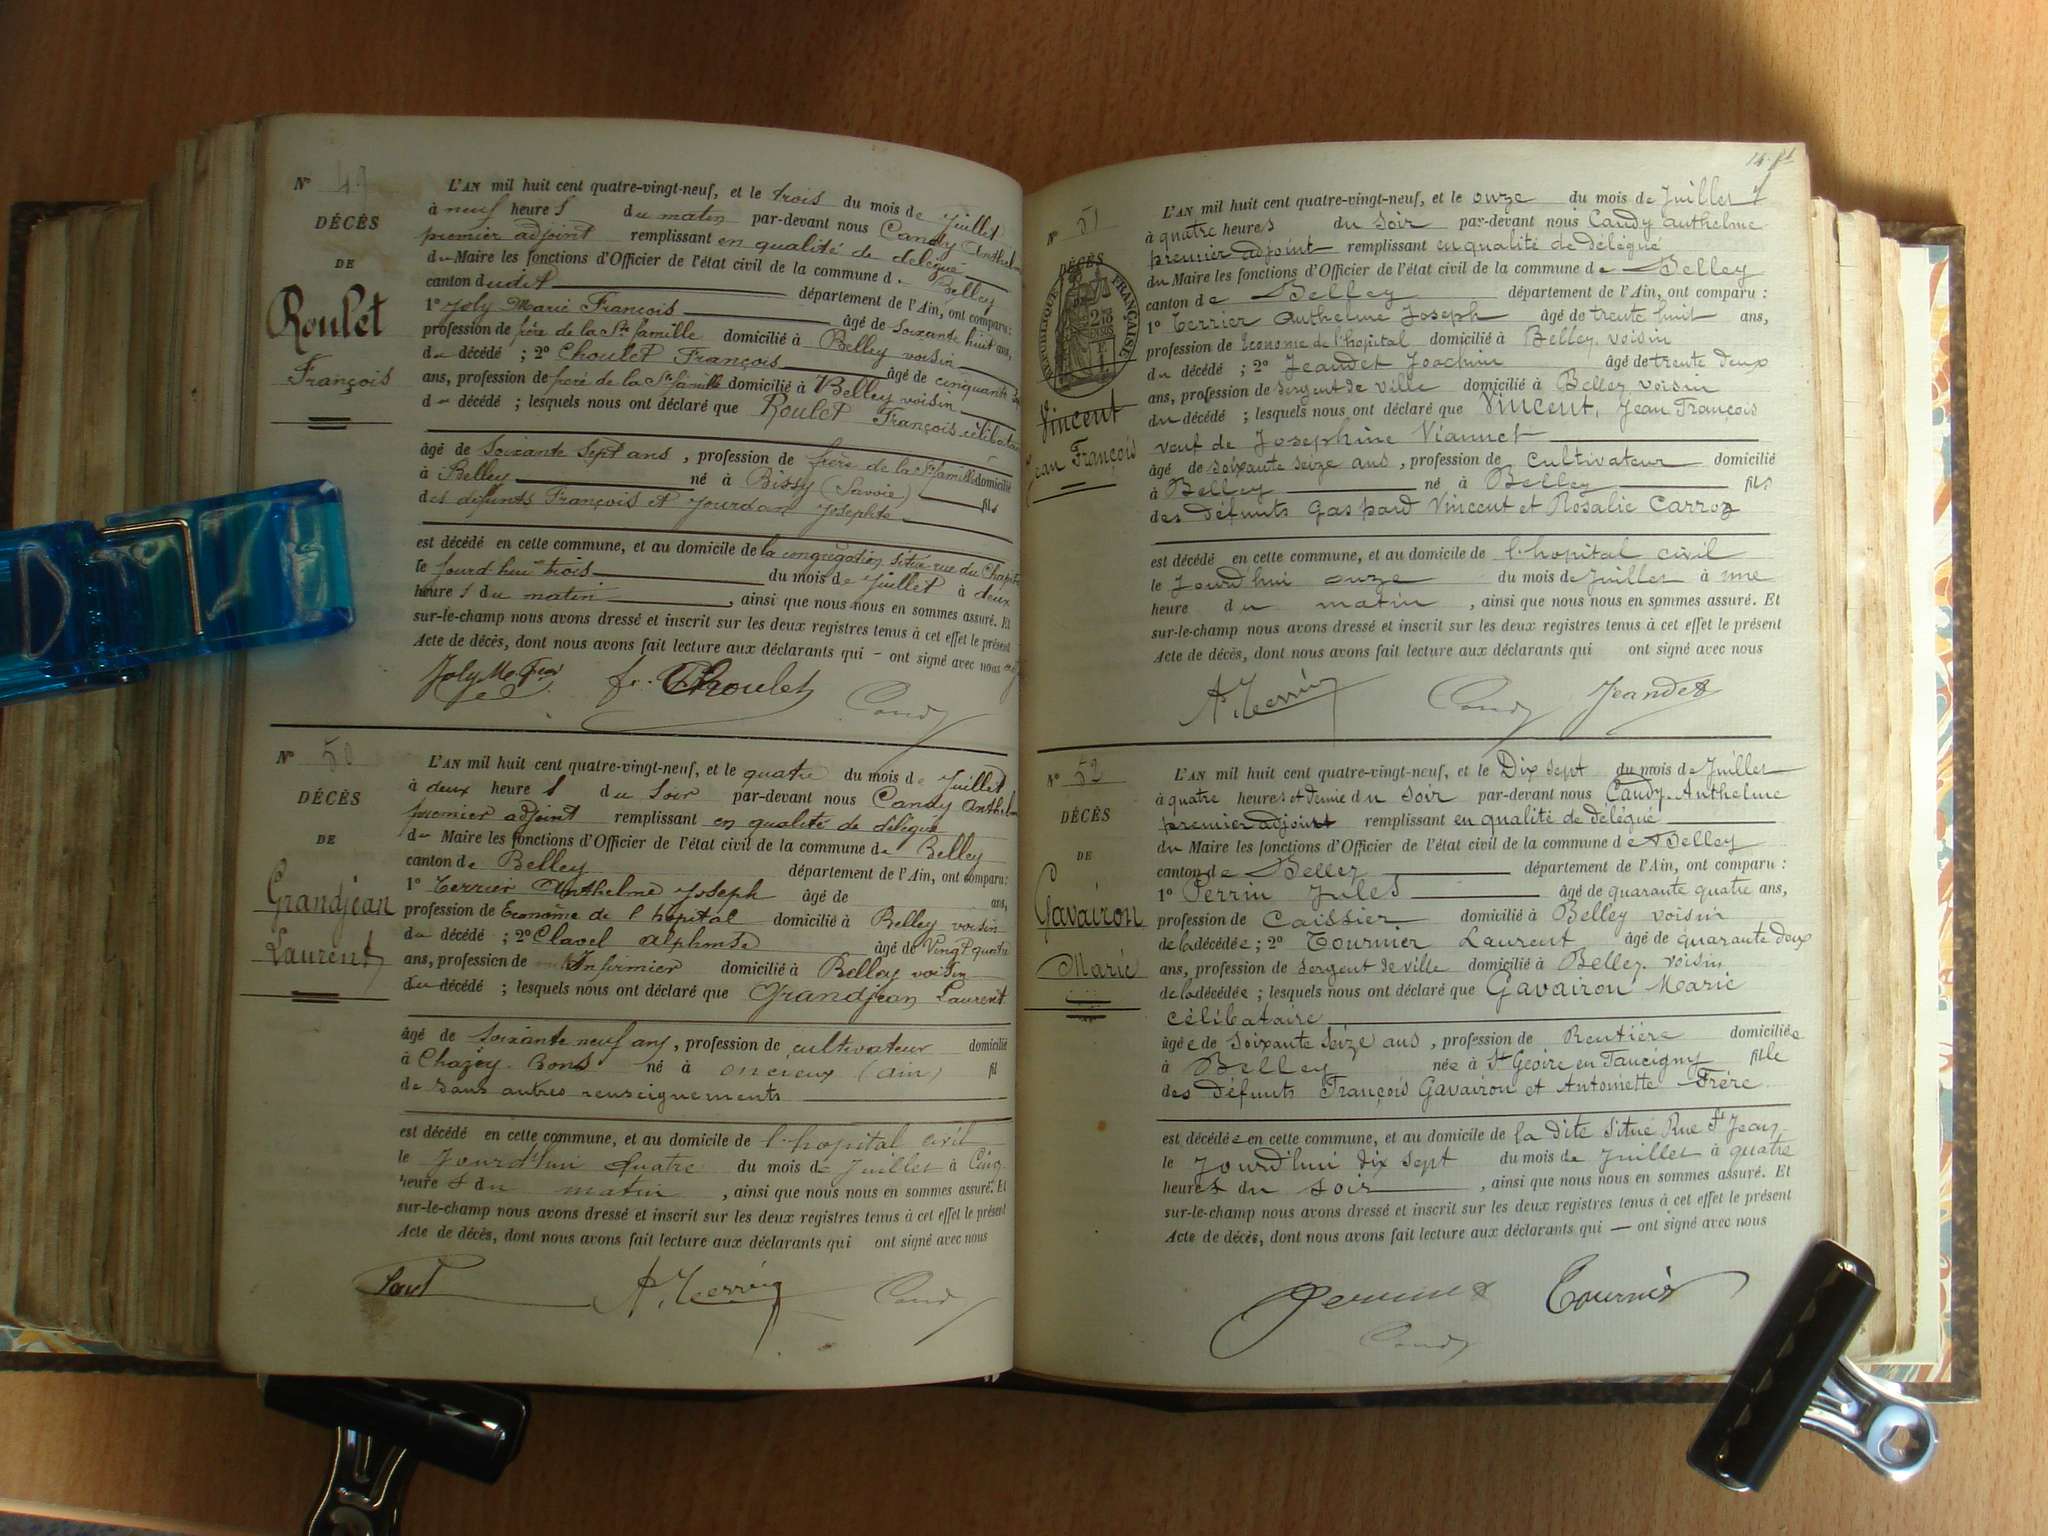 N° 49
DÉCÈS
DE
Roulet
François
L'AN mil huit cent quatre-vingt-neuf, et le trois du mois de Juillet
à neuf heures du matin par-devant nous Candy Anthelme
premier adjoint remplissant en qualité de délégué
du Maire les fonctions d'Officier de l'état civil de la commune de Belley
canton dudit département de l'Ain, ont comparu :
1° Joly Marie François âgé de soixante huit ans,
profession de frère de la Ste famille domicilié à Belley voisin
du décédé ; 2° Choulet François âgé de cinquante
ans, profession de frère de la Ste famille domicilié à Belley voisin
du décédé ; lesquels nous ont déclaré que Roulet François célibataire
âgé de soixante sept ans, profession de frère de la Ste famille domicilié
à Belley né à Bissy (Savoie) fils
des défunts François et Jourdan Josephte
est décédé en cette commune, et au domicile de la congrégation située rue du Chapitre
le jourd'hui trois du mois de Juillet à deux
heures du matin, ainsi que nous nous en sommes assuré. Et
sur-le-champ nous avons dressé et inscrit sur les deux registres tenus à cet effet le présent
Acte de décès, dont nous avons fait lecture aux déclarants qui – ont signé avec nous
Joly f. Choulet Candy
N° 50
DÉCÈS
DE
Grandjean
Laurent
L'AN mil huit cent quatre-vingt-neuf, et le quatre du mois de Juillet
à deux heures du soir par-devant nous Candy Anthelme
premier adjoint remplissant en qualité de délégué
du Maire les fonctions d'Officier de l'état civil de la commune de Belley
canton de Belley département de l'Ain, ont comparu :
1° Terrier Anthelme Joseph âgé de ans,
profession de Econome de l'hopital domicilié à Belley voisin
du décédé ; 2° Clavel alphonse âgé de Vingt quatre
ans, profession de Infirmier domicilié à Belley voisin
du décédé ; lesquels nous ont déclaré que Grandjean Laurent
âgé de soixante neuf ans, profession de cultivateur domicilié
à Chazey-Bons né à oncieux (ain) fil
de sans autres renseignements
est décédé en cette commune, et au domicile de l'hopital civil
le jourd'hui quatre du mois de Juillet à cinq
heures du matin, ainsi que nous nous en sommes assuré. Et
sur-le-champ nous avons dressé et inscrit sur les deux registres tenus à cet effet le présent
Acte de décès, dont nous avons fait lecture aux déclarants qui ont signé avec nous
A. Terrier Candy
N° 51
DÉCÈS
RÉPUBLIQUE FRANÇAISE
Vincent
Jean François
L'AN mil huit cent quatre-vingt-neuf, et le onze du mois de Juillet
à quatre heures du soir par-devant nous Candy anthelme
premier adjoint remplissant en qualité de délégué
du Maire les fonctions d'Officier de l'état civil de la commune de Belley
canton de Belley département de l'Ain, ont comparu :
1° Terrier Anthelme Joseph âgé de trente huit ans,
profession de Econome de l'hopital domicilié à Belley voisin
du décédé ; 2° Jeandet Joachim âgé de trente deux
ans, profession de sergent de ville domicilié à Belley voisin
du décédé ; lesquels nous ont déclaré que Vincent, Jean François
veuf de Josephine Viannet
âgé de soixante seize ans, profession de cultivateur domicilié
à Belley né à Belley fils
des défunts Gaspard Vincent et Rosalie Carroz
est décédé en cette commune, et au domicile de l'hopital civil
le jourd'hui onze du mois de Juillet à une
heure du matin, ainsi que nous nous en sommes assuré. Et
sur-le-champ nous avons dressé et inscrit sur les deux registres tenus à cet effet le présent
Acte de décès, dont nous avons fait lecture aux déclarants qui ont signé avec nous
A. Terrier Candy Jeandet
N° 52
DÉCÈS
DE
Gavairon
Marie
L'AN mil huit cent quatre-vingt-neuf, et le Dix sept du mois de Juillet
à quatre heures et demie du soir par-devant nous Candy Anthelme
premier adjoint remplissant en qualité de délégué
du Maire les fonctions d'Officier de l'état civil de la commune de Belley
canton de Belley département de l'Ain, ont comparu :
1° Perrin Jules âgé de quarante quatre ans,
profession de Caissier domicilié à Belley voisin
de la décédée ; 2° Tournier Laurent âgé de quarante deux
ans, profession de sergent de ville domicilié à Belley voisin
de la décédée ; lesquels nous ont déclaré que Gavairon Marie
célibataire
âgée de soixante seize ans, profession de Rentière domiciliée
à Belley née à St Geoire en Faucigny fille
des défunts François Gavairon et Antoinette Frére
est décédée en cette commune, et au domicile de la dite situé Rue St Jean
le jourd'hui dix sept du mois de Juillet à quatre
heures du soir, ainsi que nous nous en sommes assuré. Et
sur-le-champ nous avons dressé et inscrit sur les deux registres tenus à cet effet le présent
Acte de décès, dont nous avons fait lecture aux déclarants qui — ont signé avec nous
Tournier
Candy